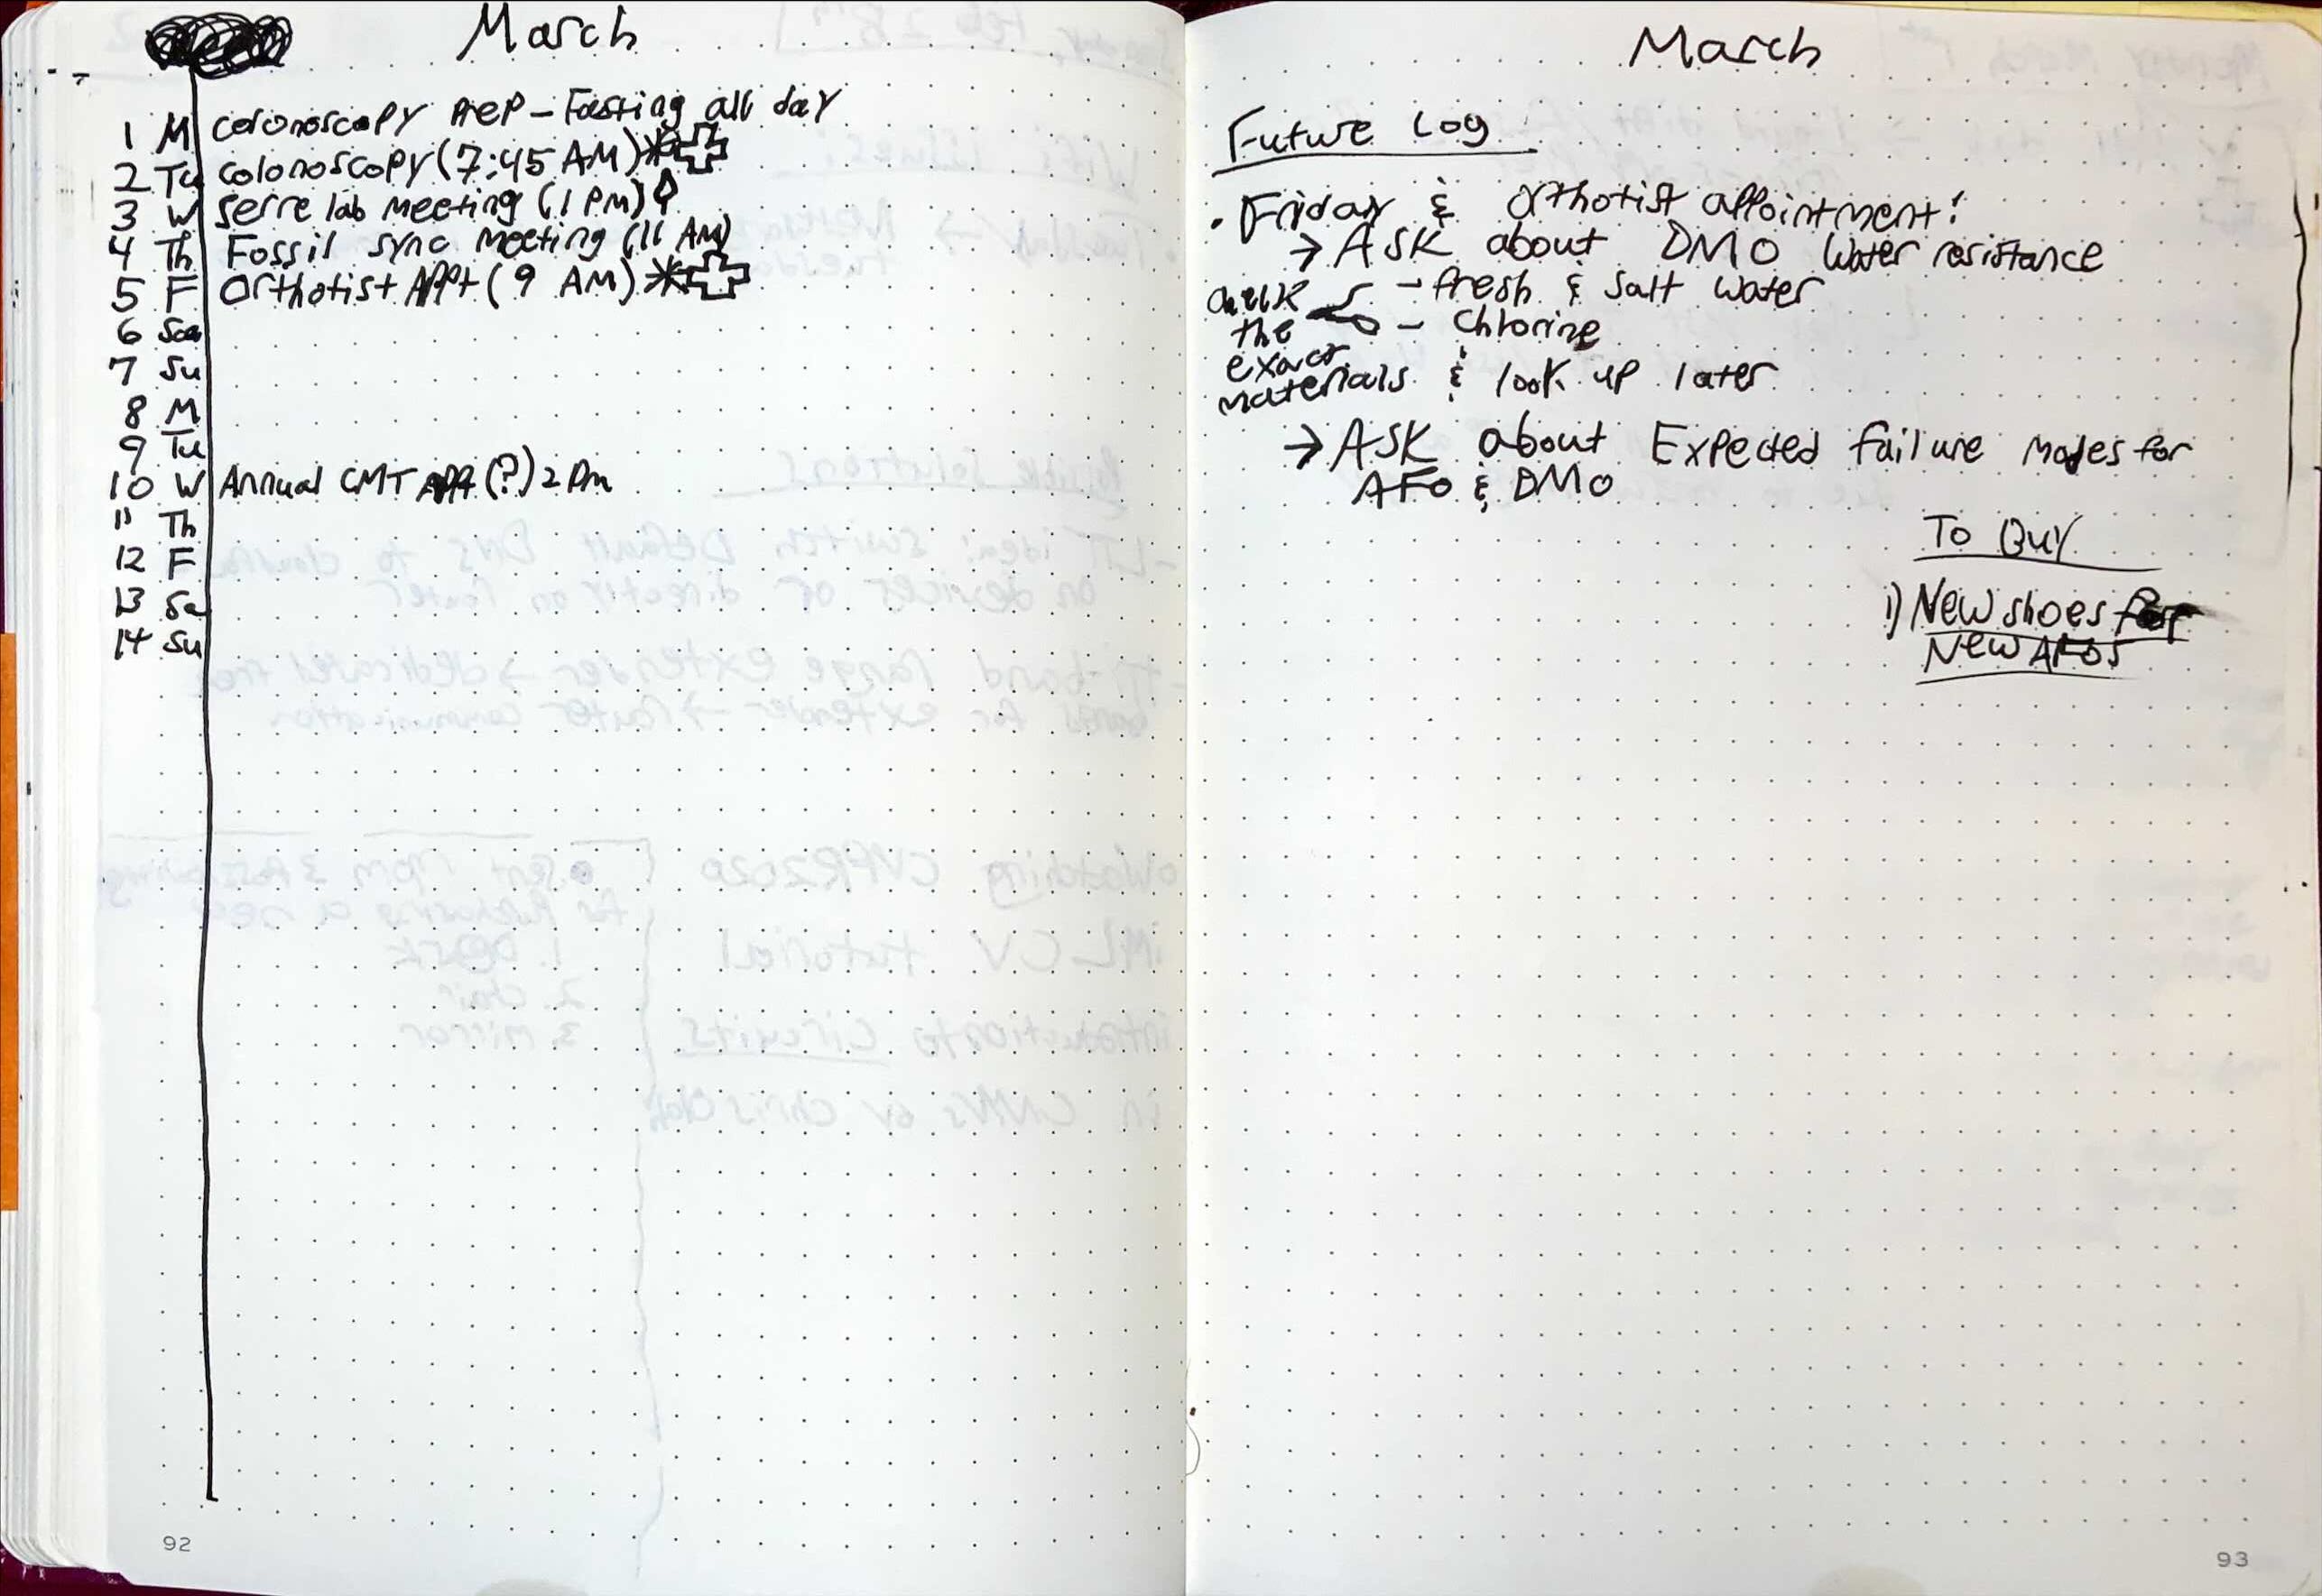 March
1 M Colonoscopy PreP - Fasting all day
2 Tu Colonoscopy (7:45 AM)
3 W Serre lab Meeting (1 PM)
4 Th Fossil sync Meeting (11 AM)
5 F Orthotist APPt (9 AM)
6 Sa
7 Su
8 M
9 Tu
10 W Annual CMT APPt (?) 2 Pm
11 Th
12 F
13 Sa
14 Su
92
March
Future Log
• Friday & Orthotist appointment!
→ ASK about DMO Water resistance
- fresh & Salt Water
- Chlorine
check
the
exact
materials & look up later
→ ASK about Expected failure Modes for
AFO & DMO
To Buy
1) New shoes for
New AFOs
93